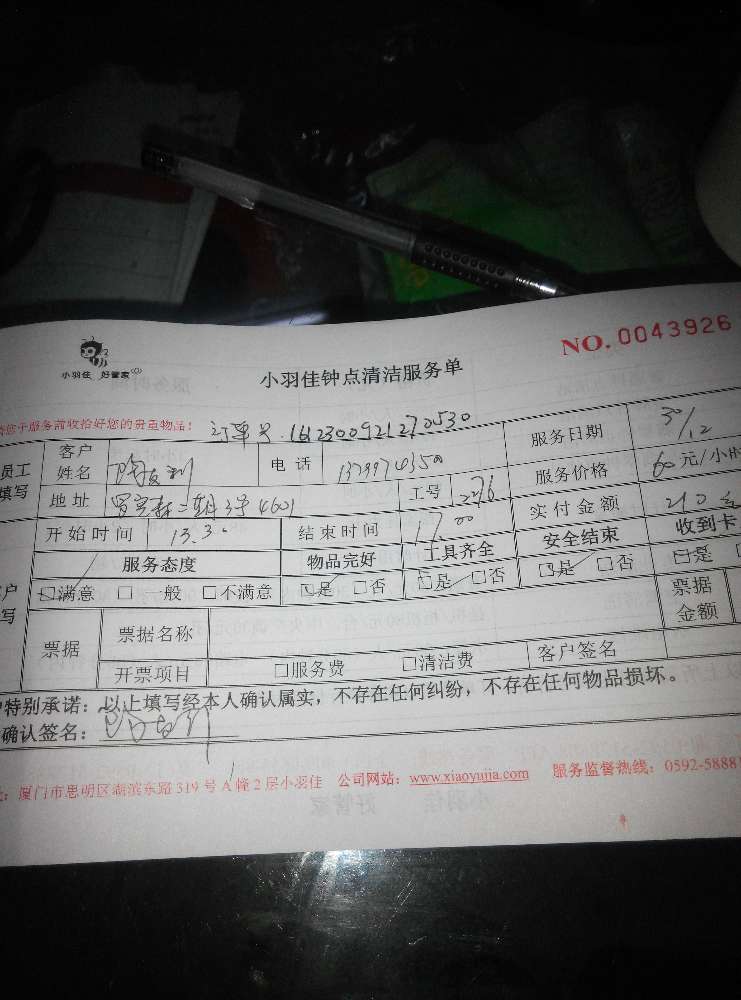 NO. 0043926
小羽佳 好管家
小羽佳钟点清洁服务单
您于服务前收拾好您的贵重物品!
订单号:1612300921270530
员工填写 客户姓名 电话 服务日期 30/12
地址 4601 工号 2276 服务价格 60元/小时
开始时间 13.30 结束时间 17.00 实付金额 210
服务态度 物品完好 工具齐全 安全结束 收到卡
☑满意 □一般 □不满意 ☑是 □否 ☑是 □否 ☑是 □否 ☑是
票据 票据名称 票据金额
开票项目 □服务费 □清洁费 客户签名
特别承诺:以上填写经本人确认属实,不存在任何纠纷,不存在任何物品损坏。
确认签名:
厦门市思明区湖滨东路319号A幢2层小羽佳 公司网站:www.xiaoyujia.com 服务监督热线:0592-5888